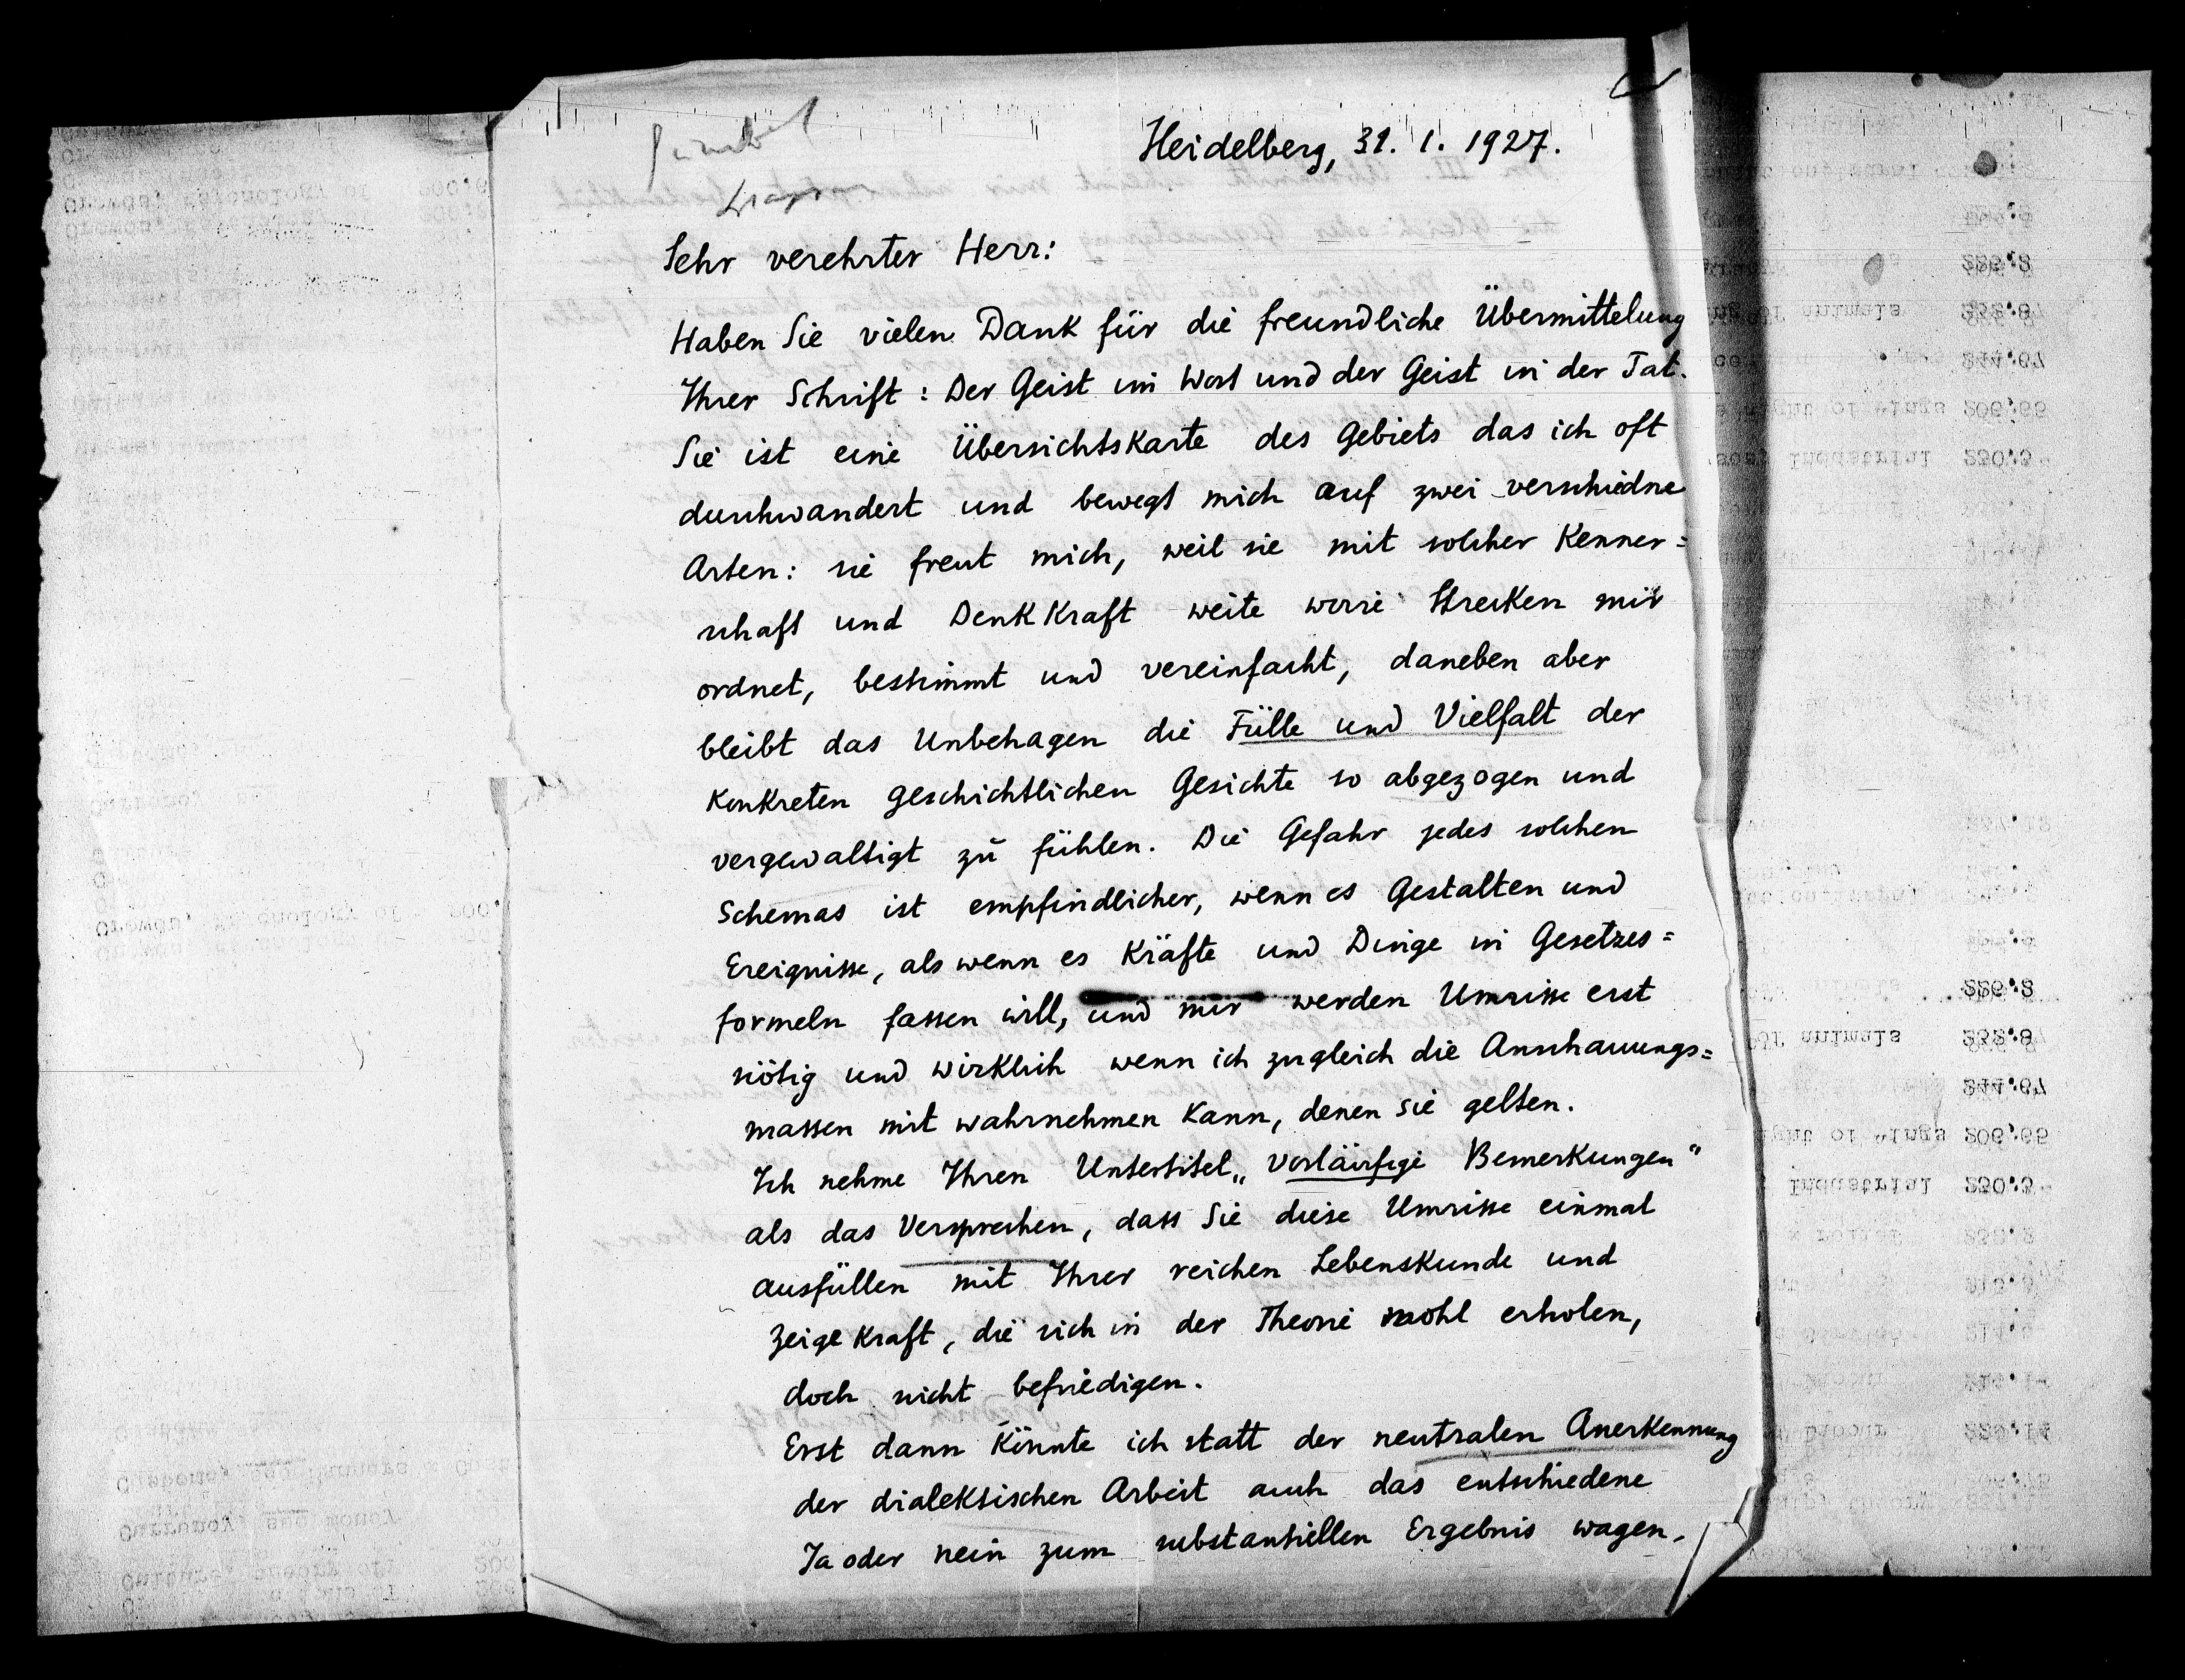 Heidelberg, 31. 1. 1927.
Sehr verehrter Herr:
Haben Sie vielen Dank für die freundliche Übermittelung
Ihrer Schrift: Der Geist im Wort und der Geist in der Tat.
Sie ist eine Übersichtskarte des Gebiets das ich oft
durchwandert und bewegt mich auf zwei verschiedne
Arten: sie freut mich, weil sie mit solcher Kenner=
schaft und Denkkraft weite wirre Strecken mir
ordnet, bestimmt und vereinfacht, daneben aber
bleibt das Unbehagen die Fülle und Vielfalt der
konkreten geschichtlichen Gesichte so abgezogen und
vergewaltigt zu fühlen. Die Gefahr jedes solchen
Schemas ist empfindlicher, wenn es Gestalten und
Ereignisse, als wenn es Kräfte und Dinge in Gesetzes=
formeln fassen will, und mir werden Umrisse erst
nötig und wirklich wenn ich zugleich die Anschauungs=
massen mit wahrnehmen kann, denen sie gelten.
Ich nehme Ihren Untertitel „Vorläufige Bemerkungen"
als das Versprechen, dass Sie diese Umrisse einmal
ausfüllen mit Ihrer reichen Lebenskunde und
Zeigekraft, die sich in der Theorie wohl erholen,
doch nicht befriedigen.
Erst dann könnte ich statt der neutralen Anerkennung
der dialektischen Arbeit auch das entschiedene
Ja oder nein zum substantiellen Ergebnis wagen.